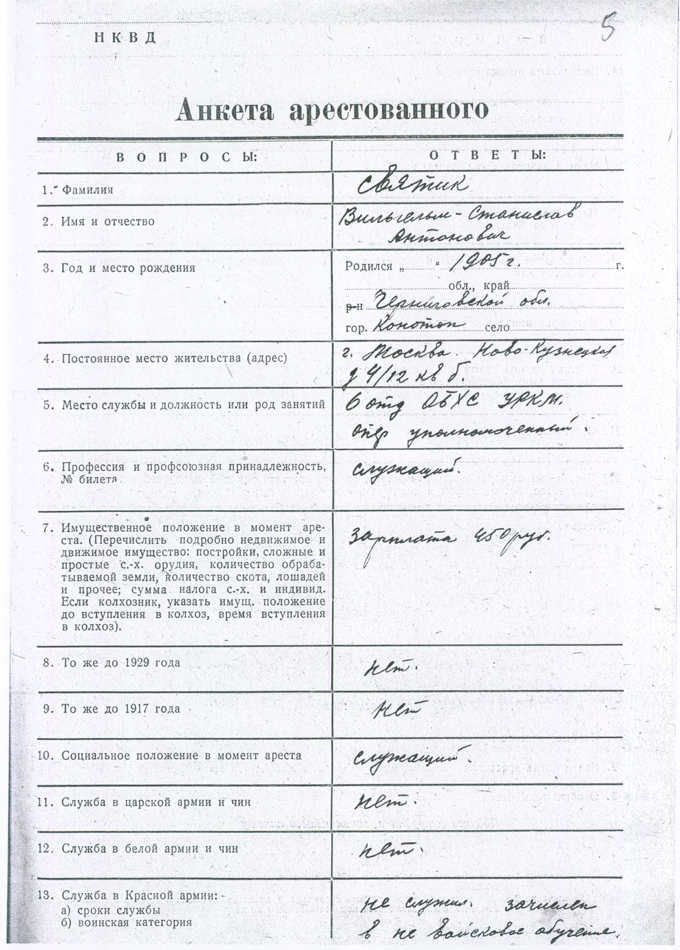 5
НКВД
Анкета арестованного
ВОПРОСЫ:
ОТВЕТЫ:
1. Фамилия
Святик
2. Имя и отчество
Вильгельм-Станислав
Антонович
3. Год и место рождения
Родился „ “ 1905 г. г.
обл., край
р-н Черниговской обл.
гор. Конотоп село
4. Постоянное место жительства (адрес)
г. Москва. Ново-Кузнецкая
д 4/12 кв 6.
5. Место службы и должность или род занятий
6 отд ОБХС УРКМ.
опер уполномоченный.
6. Профессия и профсоюзная принадлежность,
№ билета
служащий.
7. Имущественное положение в момент аре-
ста. (Перечислить подробно недвижимое и
движимое имущество: постройки, сложные и
простые с.-х. орудия, количество обраба-
тываемой земли, количество скота, лошадей
и прочее; сумма налога с.-х. и индивид.
Если колхозник, указать имущ. положение
до вступления в колхоз, время вступления
в колхоз).
Зарплата 450 руб.
8. То же до 1929 года
нет.
9. То же до 1917 года
нет
10. Социальное положение в момент ареста
служащий.
11. Служба в царской армии и чин
нет.
12. Служба в белой армии и чин
нет.
13. Служба в Красной армии:
а) сроки службы
б) воинская категория
не служил. зачислен
в не войсковое обучение.